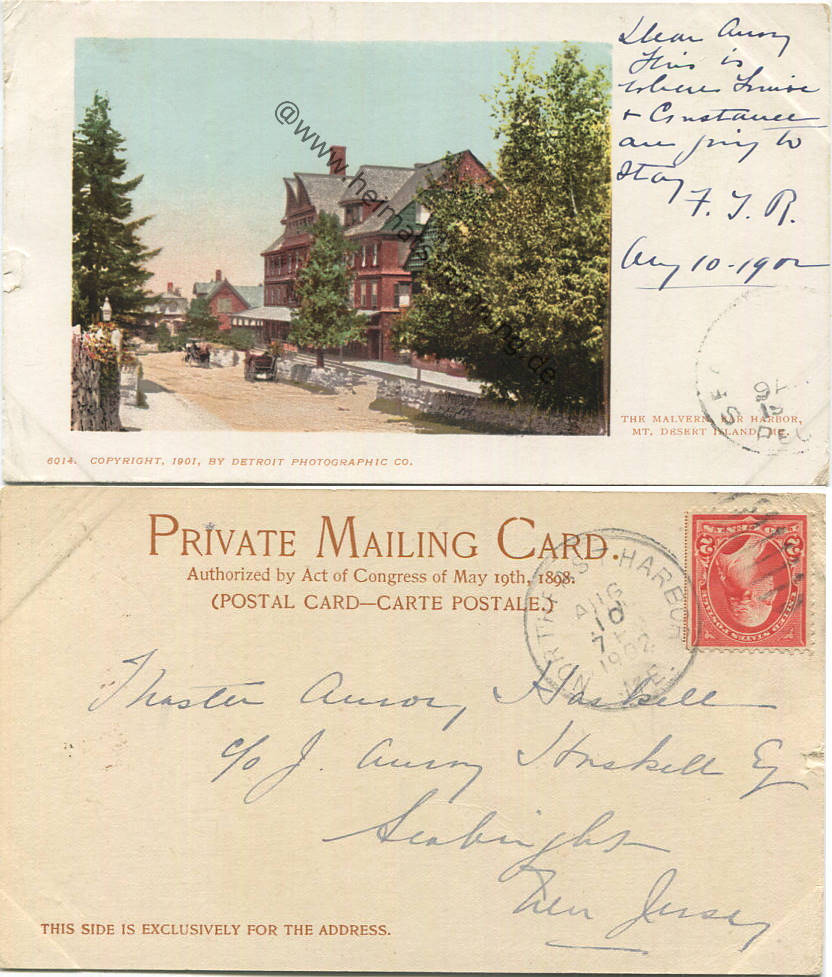 Dear Amory
This is
where Louise
& Constance
are going to
stay
F. T. R.
Aug 10-1902
@www.heimatsammlung.de
THE MALVERN, BAR HARBOR,
MT. DESERT ISLAND, ME.
6014. COPYRIGHT, 1901, BY DETROIT PHOTOGRAPHIC CO.
PRIVATE MAILING CARD.
Authorized by Act of Congress of May 19th, 1898.
(POSTAL CARD—CARTE POSTALE.)
NORTHEAST HARBOR
AUG
10
7
1902
ME.
UNITED STATES POSTAGE
Master Amory Haskell
c/o J. Amory Haskell Esq
Seabright
New Jersey
THIS SIDE IS EXCLUSIVELY FOR THE ADDRESS.